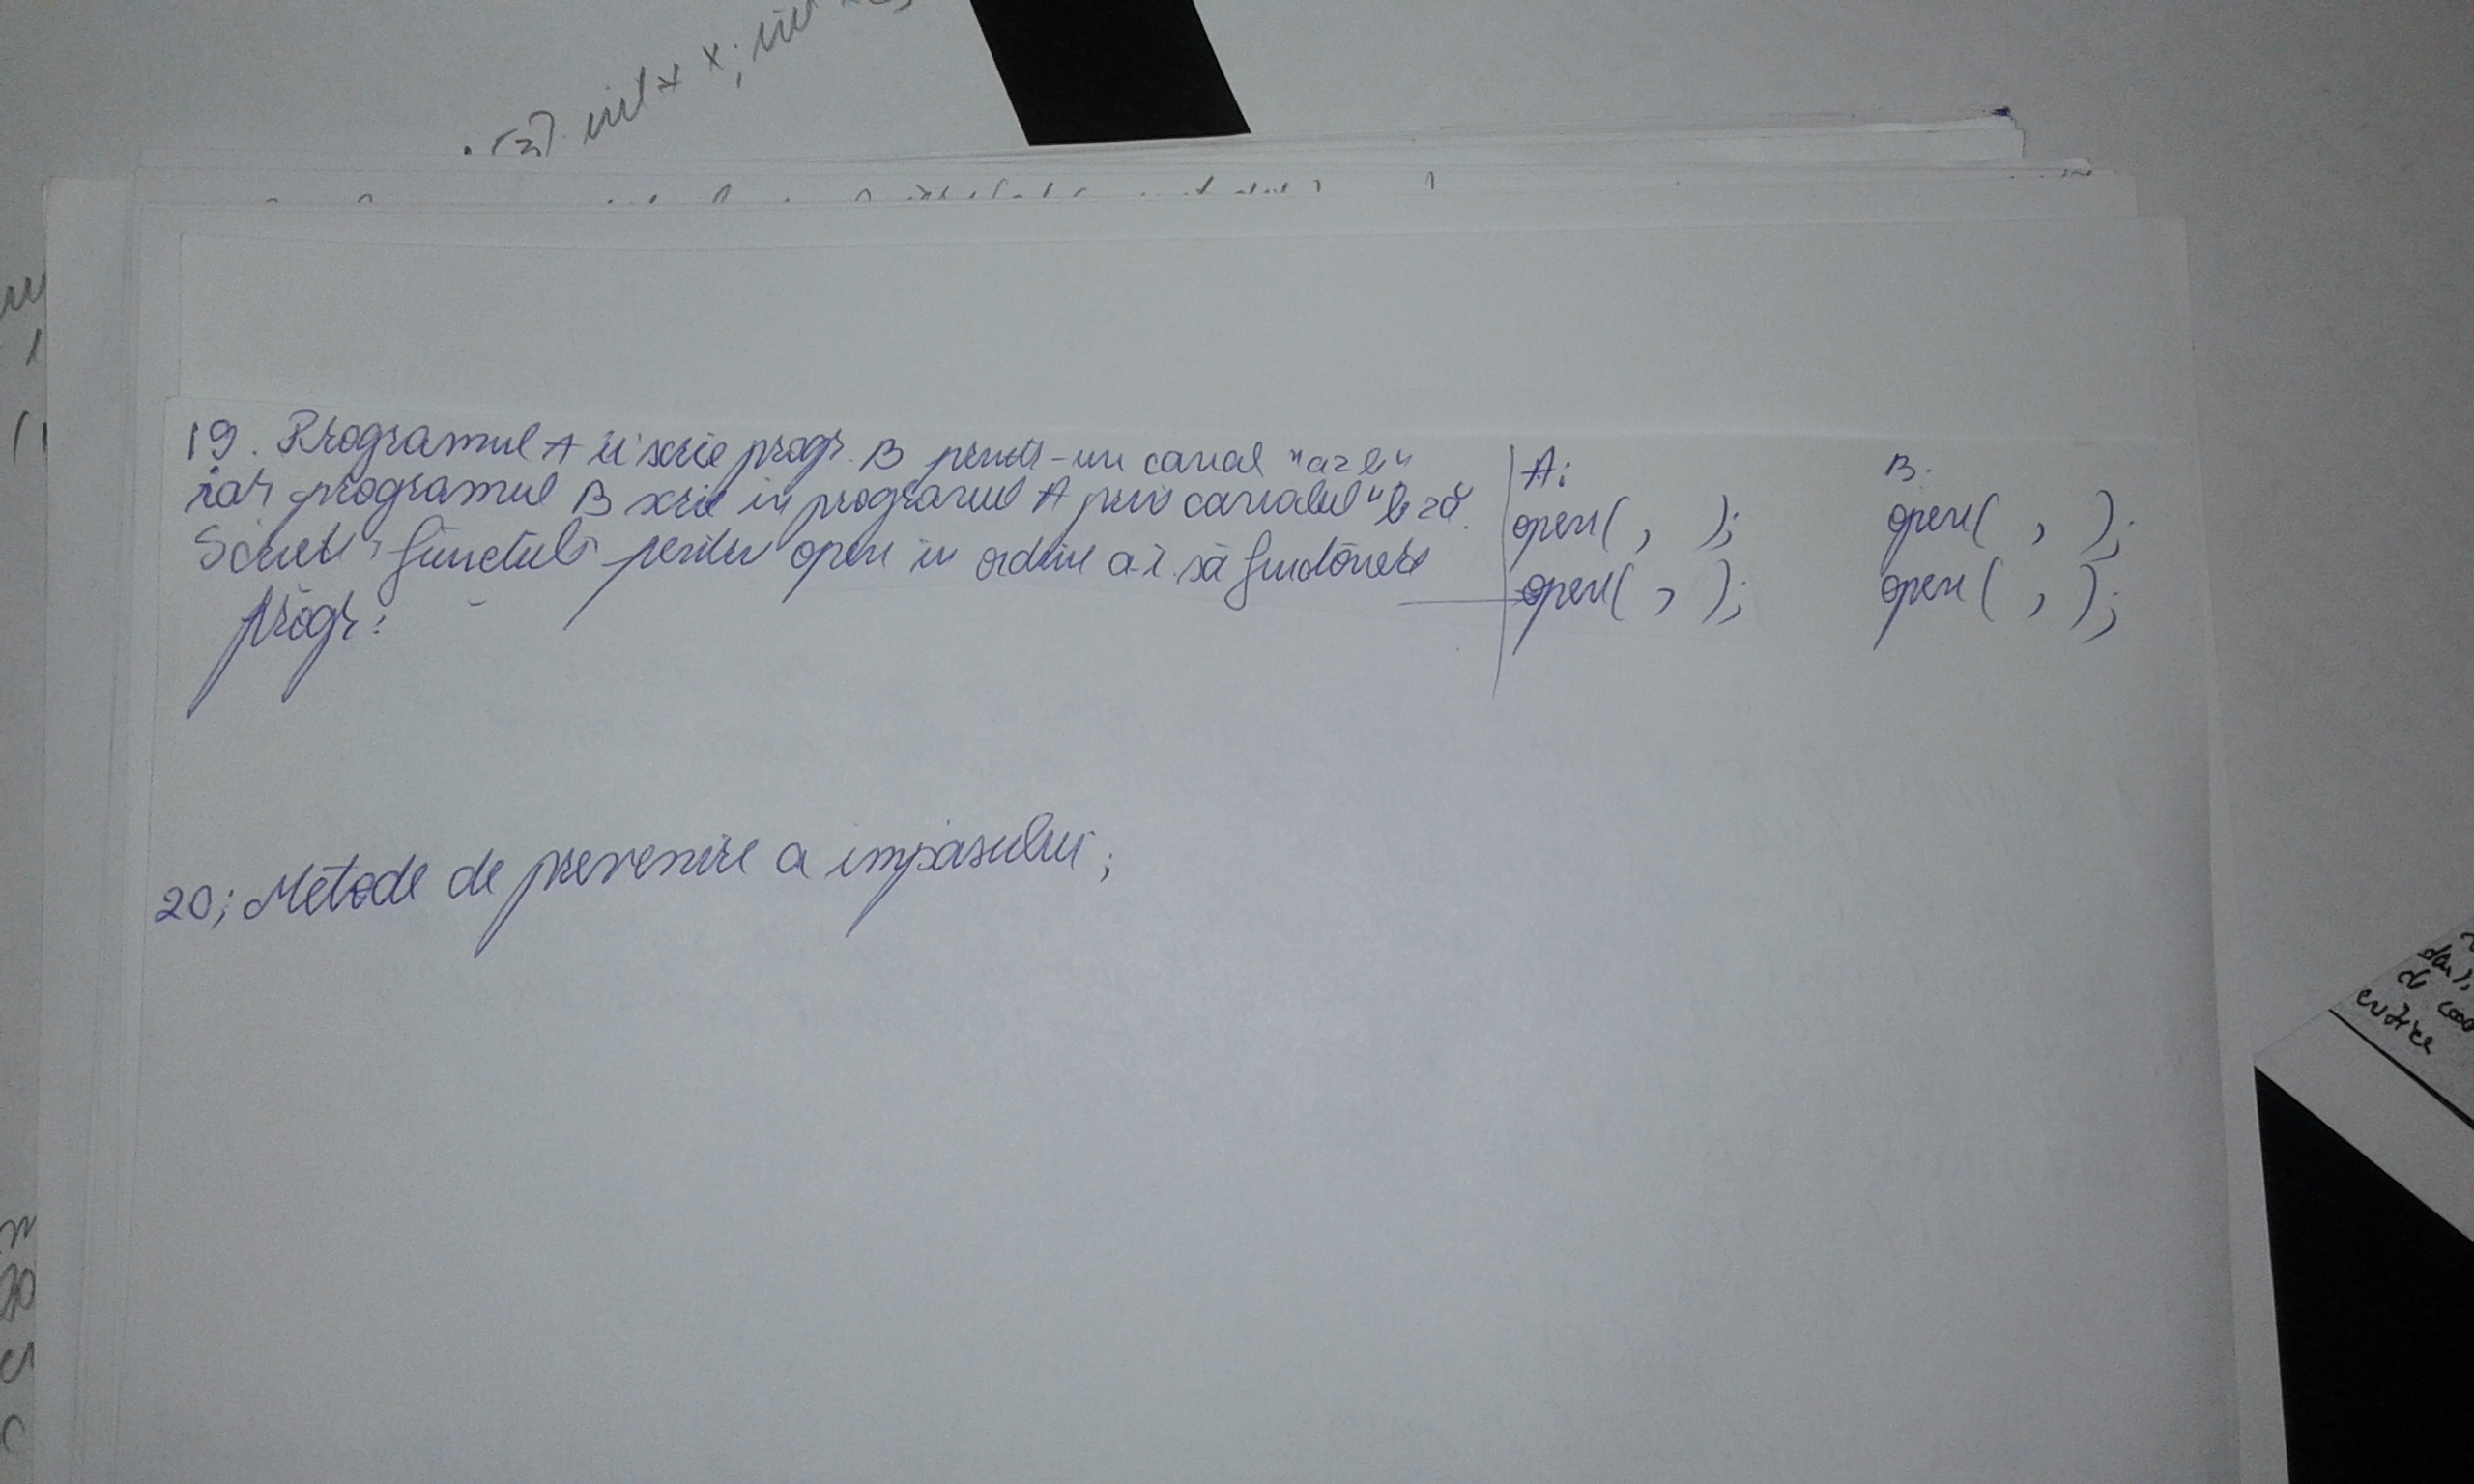 int * x; int
19. Programul A îi scrie progr. B printr-un canal "a2b"
iar programul B scrie in programul A prin canalul "b2a".
Scrieti functiile pentru open in ordine a.i. să functioneze
progr:
A: B.
open( , ); open( , );
open( , ); open( , );
20; Metode de prevenire a impasului;
de
critice